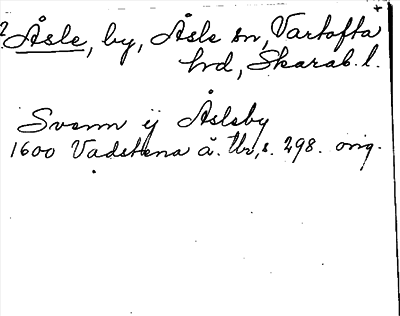 ? Åsle, by, Åsle sn, Vartofta
hd, Skarab. l.
Svenn ij Åsleby
1600 Vadstena å. Ubr, s. 298. orig.